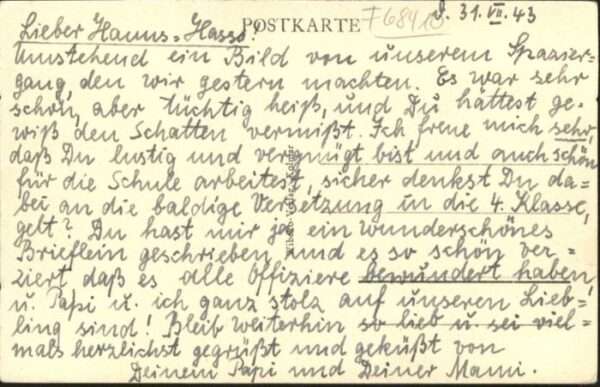 POSTKARTE F6841
d. 31. VII. 43
Lieber Hanns-Hasso!
Umstehend ein Bild von unserem Spazier-
gang, den wir gestern machten. Es war sehr
schön, aber tüchtig heiß, und Du hättest ge-
wiß den Schatten vermißt. Ich freue mich sehr,
daß Du lustig und vergnügt bist und auch schön
für die Schule arbeitest, sicher denkst Du da-
bei an die baldige Versetzung in die 4. Klasse,
gelt? Du hast mir ja ein wunderschönes
Brieflein geschrieben und es so schön ver-
ziert daß es alle Offiziere bewundert haben,
u. Papi u. ich ganz stolz auf unseren Lieb-
ling sind! Bleib weiterhin so lieb u. sei viel-
mals herzlichst gegrüßt und geküßt von
Deinem Papi und Deiner Mami.